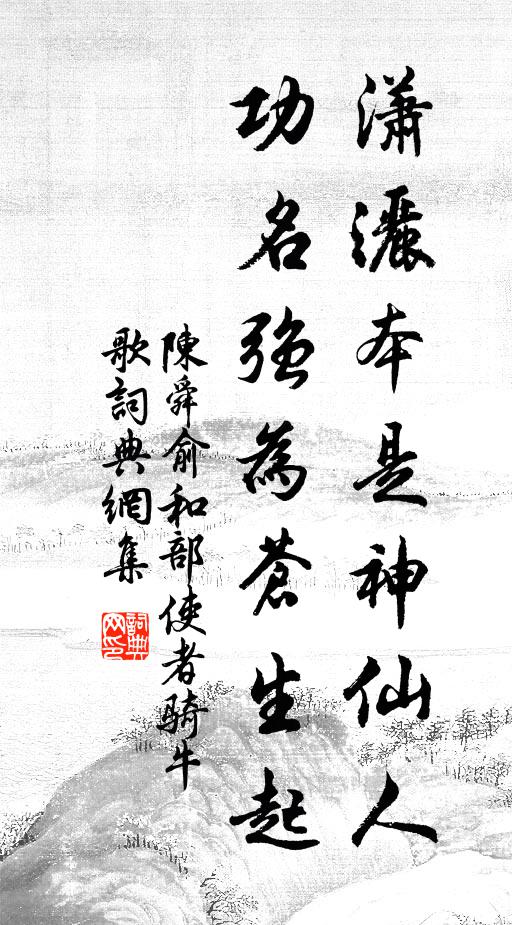 瀟灑本是神仙人
功名強為蒼生起
陳舜俞和部使者騎牛
歌詞典網集
詞典
网印